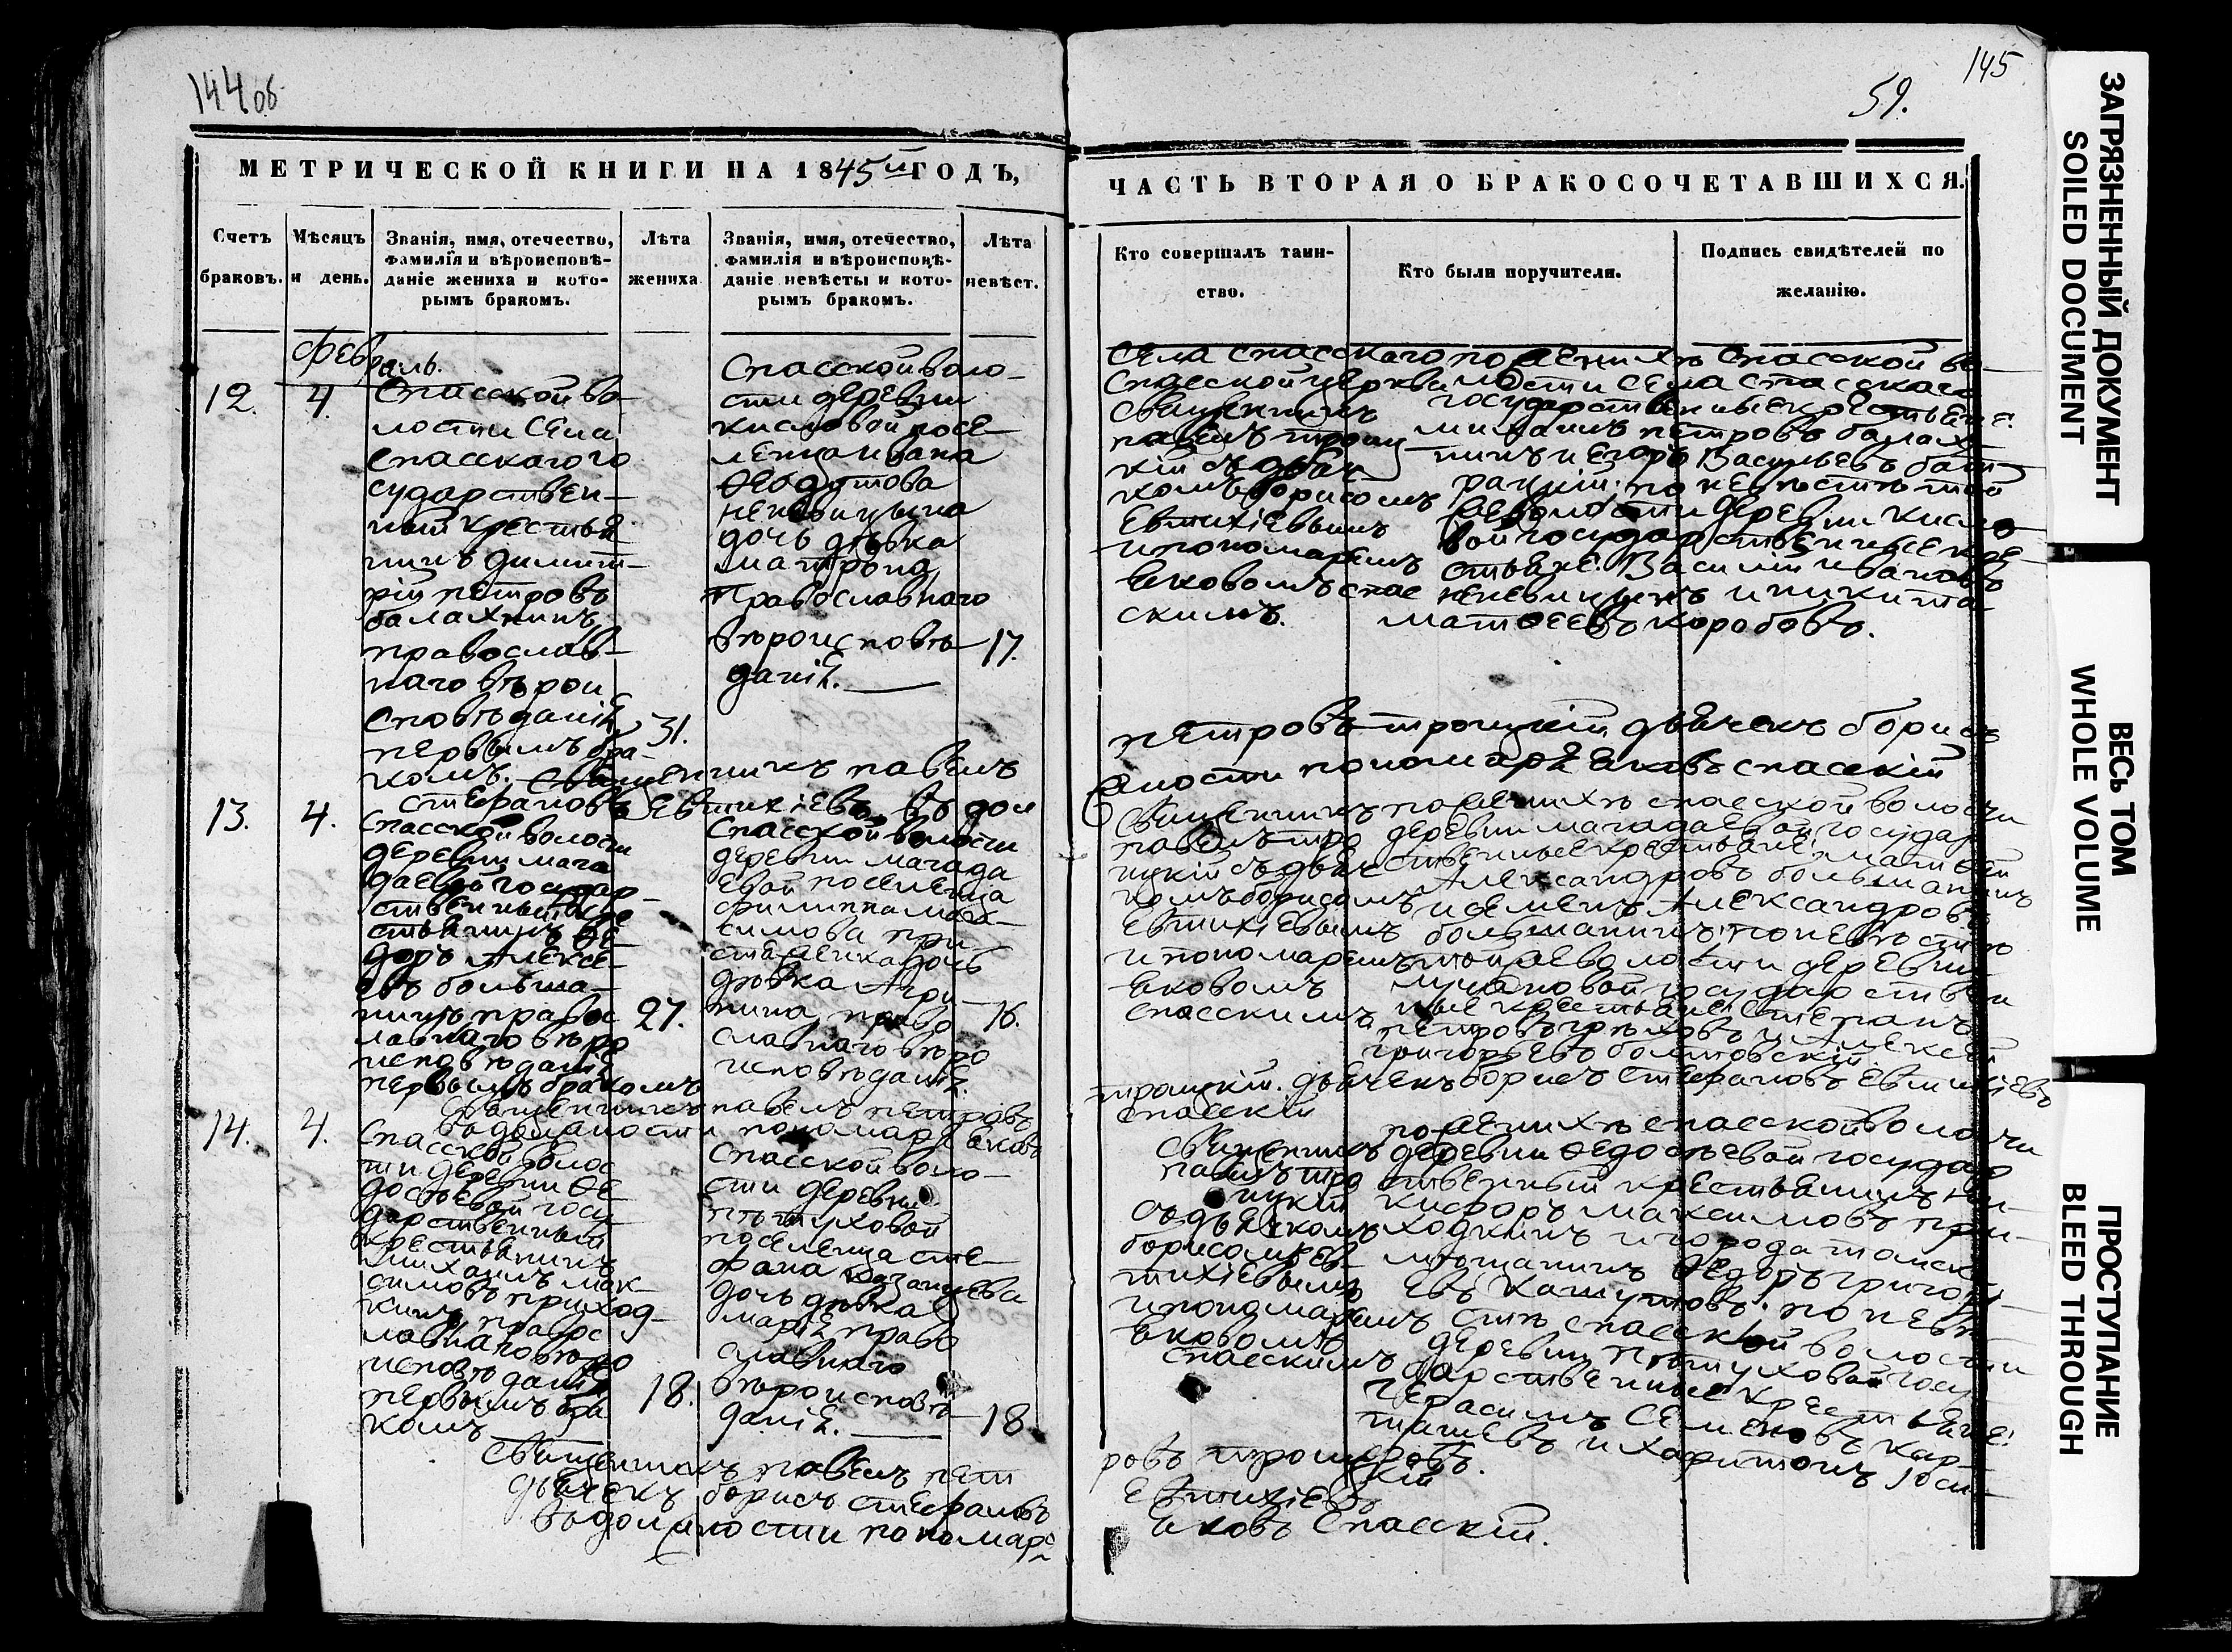 144об
145
59.
МЕТРИЧЕСКОЙ КНИГИ НА 1845й ГОДЪ,
ЧАСТЬ ВТОРАЯ О БРАКОСОЧЕТАВШИХСЯ.
Счетъ браковъ.
Мѣсяцъ и день.
Званія, имя, отечество,
фамилія и вѣроисповѣ-
даніе жениха и кото-
рымъ бракомъ.
Лѣта
жениха
Званія, имя, отечество,
фамилія и вѣроисповѣ-
даніе невѣсты и кото-
рымъ бракомъ.
Лѣта
невѣст.
Кто совершалъ таин-
ство.
Кто были поручители.
Подпись свидѣтелей по
желанію.
Февраль.
12.
4.
Спасской во-
лости села
спасскаго го
сударствен-
ный крестья
нинъ димит-
рій петровъ
балахнинъ
православ-
наго вѣрои
сповѣданія
первымъ бра-
комъ.
31.
Спасской воло-
сти деревни
кисловой посе-
ленца ивана
Ѳеодотова
неневицына
дочь дѣвка
матрона,
Православнаго
вѣроисповѣ-
данія.
17.
Села спасскаго
спасской церкви
священникъ
павелъ троиц
кій съ дьяч
комъ борисомъ
Евтихіевымъ
и пономаремъ
Яковомъ спас
скимъ.
по женихѣ Спасской во-
лости села спасскаго
государственные крестьяне:
михаилъ петровъ балах
нинъ и Егоръ Васильевъ бат-
рацкій; по невѣстѣ той
же волости деревни кисло
вой государственные кре
стьяне: Василій ивановъ
неневицынъ и никита
матѳеевъ коробовъ.
Священникъ павелъ петровъ троицкій дьячекъ борисъ
стефановъ Евтихіевъ въ дол
жности пономаря Яковъ спасскій
13.
4.
Спасской волости
деревни мага
даевой государ-
ственный кре
стьянинъ Ѳе-
доръ Алексе-
евъ больша-
нинъ правос
лавнаго вѣро
исповѣданія
первымъ бракомъ
27.
Спасской волости
деревни магада
евой поселенца
филиппа мак-
симова при-
дочь
дѣвка Агри-
пина, право
славнаго вѣро
исповѣданія.
16.
Священникъ
павелъ тро
ицкій съ дьяч
комъ борисомъ
Евтихіевымъ
и пономаремъ
Яковомъ
спасскимъ
по женихѣ спасской волости
деревни магадаевой государ
ственные крестьяне: матѳей
Александровъ большанинъ
и семенъ Александровъ
большанинъ; по невѣстѣ
той же волости деревни
государствен
ные крестьяне: Степанъ
петровъ и Алексей
григорьевъ болтовскій.
Священникъ павелъ петровъ троицкій. дьячекъ борисъ стефановъ Евтихіевъ
въ должности пономаря Яковъ спасскій
14.
4.
Спасской волос
ти деревни Ѳе
досѣевой госу
дарственный
крестьянинъ
михаилъ мак-
симовъ приход-
кинъ правос
лавнаго вѣро
исповѣданія
первымъ бра
комъ
18.
Спасской воло-
сти деревни
пѣтуховой
поселенца сте-
фана казанцева
дочь дѣвка
марія право
славнаго
вѣроисповѣ-
данія.
18.
Священникъ
павелъ тро
ицкій
съ дьячкомъ
борисомъ Ев-
тихіевымъ
и пономаремъ
Яковомъ
спасскимъ
по женихѣ спасской волости
деревни Ѳедосѣевой государ
ственный крестьянинъ ни-
кифоръ максимовъ при-
ходкинъ и города томска
мѣщанинъ Ѳедоръ григорь-
евъ Кашутовъ. по невѣ
стѣ спасской волости
деревни пѣтуховой госу
дарственные крестьяне:
герасимъ Семеновъ кар-
ташевъ и харитонъ
Священникъ павелъ пет
ровъ троицкій
дьячекъ борисъ стефановъ
Евтихіевъ
въ должности пономаря
Яковъ Спасскій.
ЗАГРЯЗНЕННЫЙ ДОКУМЕНТ
SOILED DOCUMENT
ВЕСЬ ТОМ
WHOLE VOLUME
ПРОСТУПАНИЕ
BLEED THROUGH